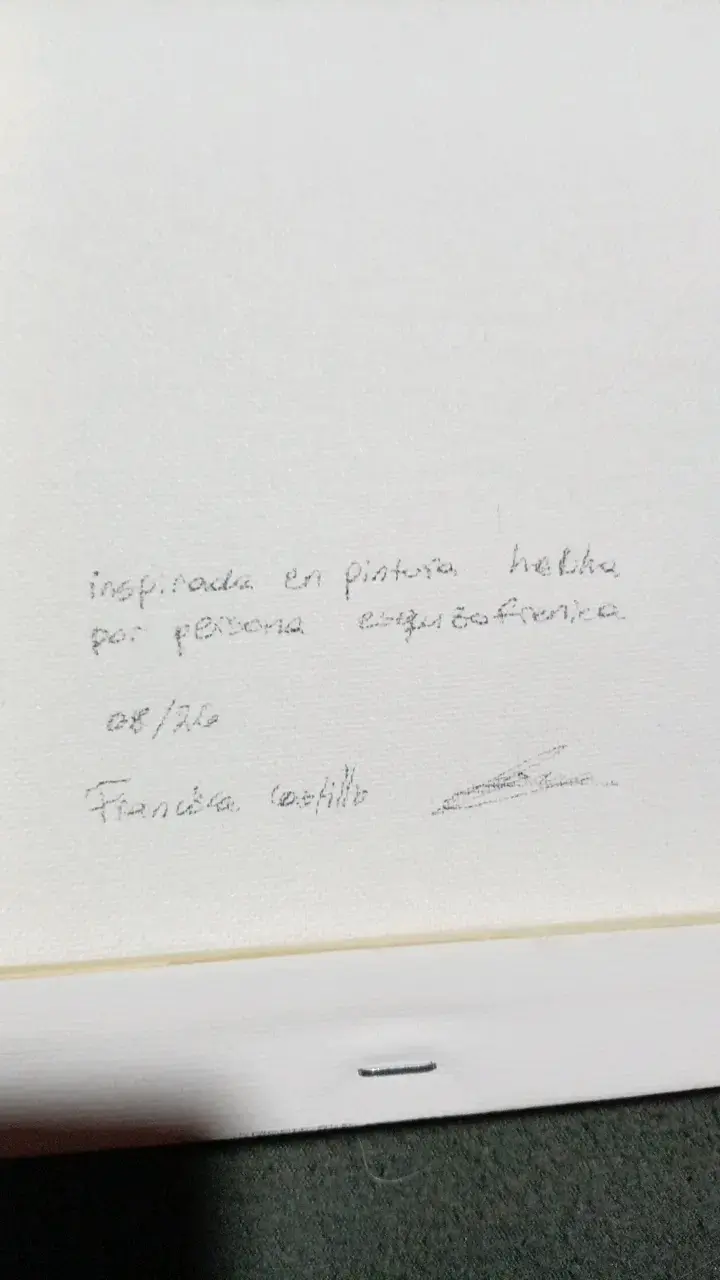 inspirada en pintura hecha
por persona esquizofrenica
08/26
Francisca Castillo